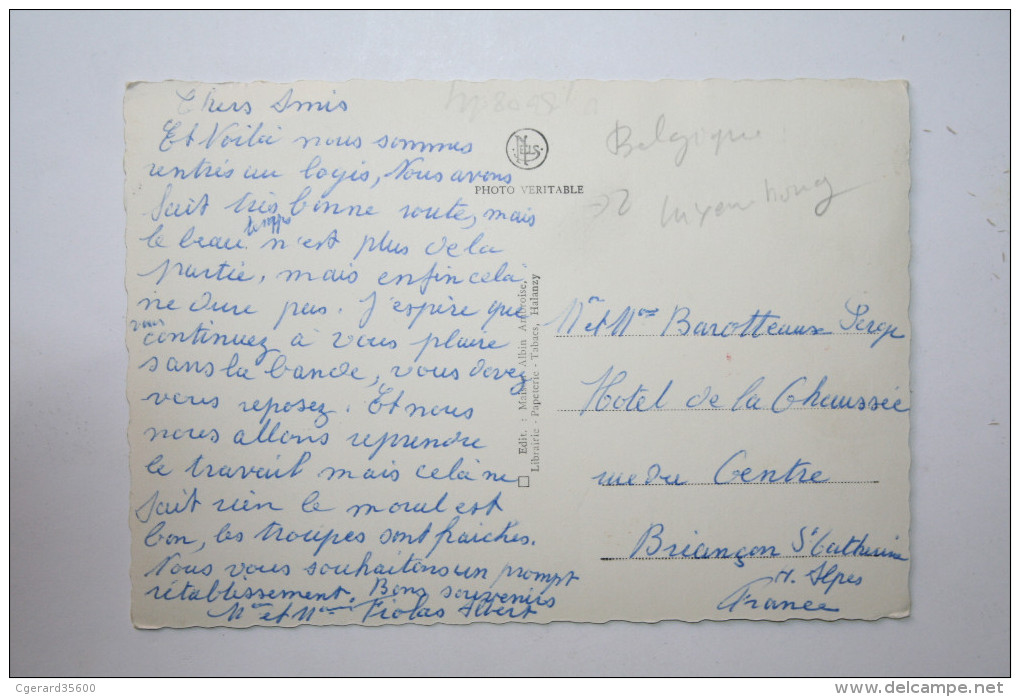 Chers Amis
Et Voilà nous sommes
rentrés au logis, Nous avons
fait très bonne route, mais
le beau temps n'est plus de la
partie, mais enfin cela
ne dure pas. J'espère que
vous continuez à vous plaire
sans la bande, vous devez
vous reposez. Et nous
nous allons reprendre
le travail mais cela ne
fait rien le moral est
bon, les troupes sont fraiches.
Nous vous souhaitons un prompt
rétablissement. Bons souvenirs
Mr et Mme Albert
NELS
PHOTO VERITABLE
Belgique
Luxembourg
Edit. : Maison Albin Ambroise,
Librairie - Papeterie - Tabacs, Halanzy
Mr et Mme Barotteaux Serge
Hotel de la Chaussée
rue du Centre
Briançon Ste Catherine
H. Alpes
France
Cgerard35600
delcampe.net